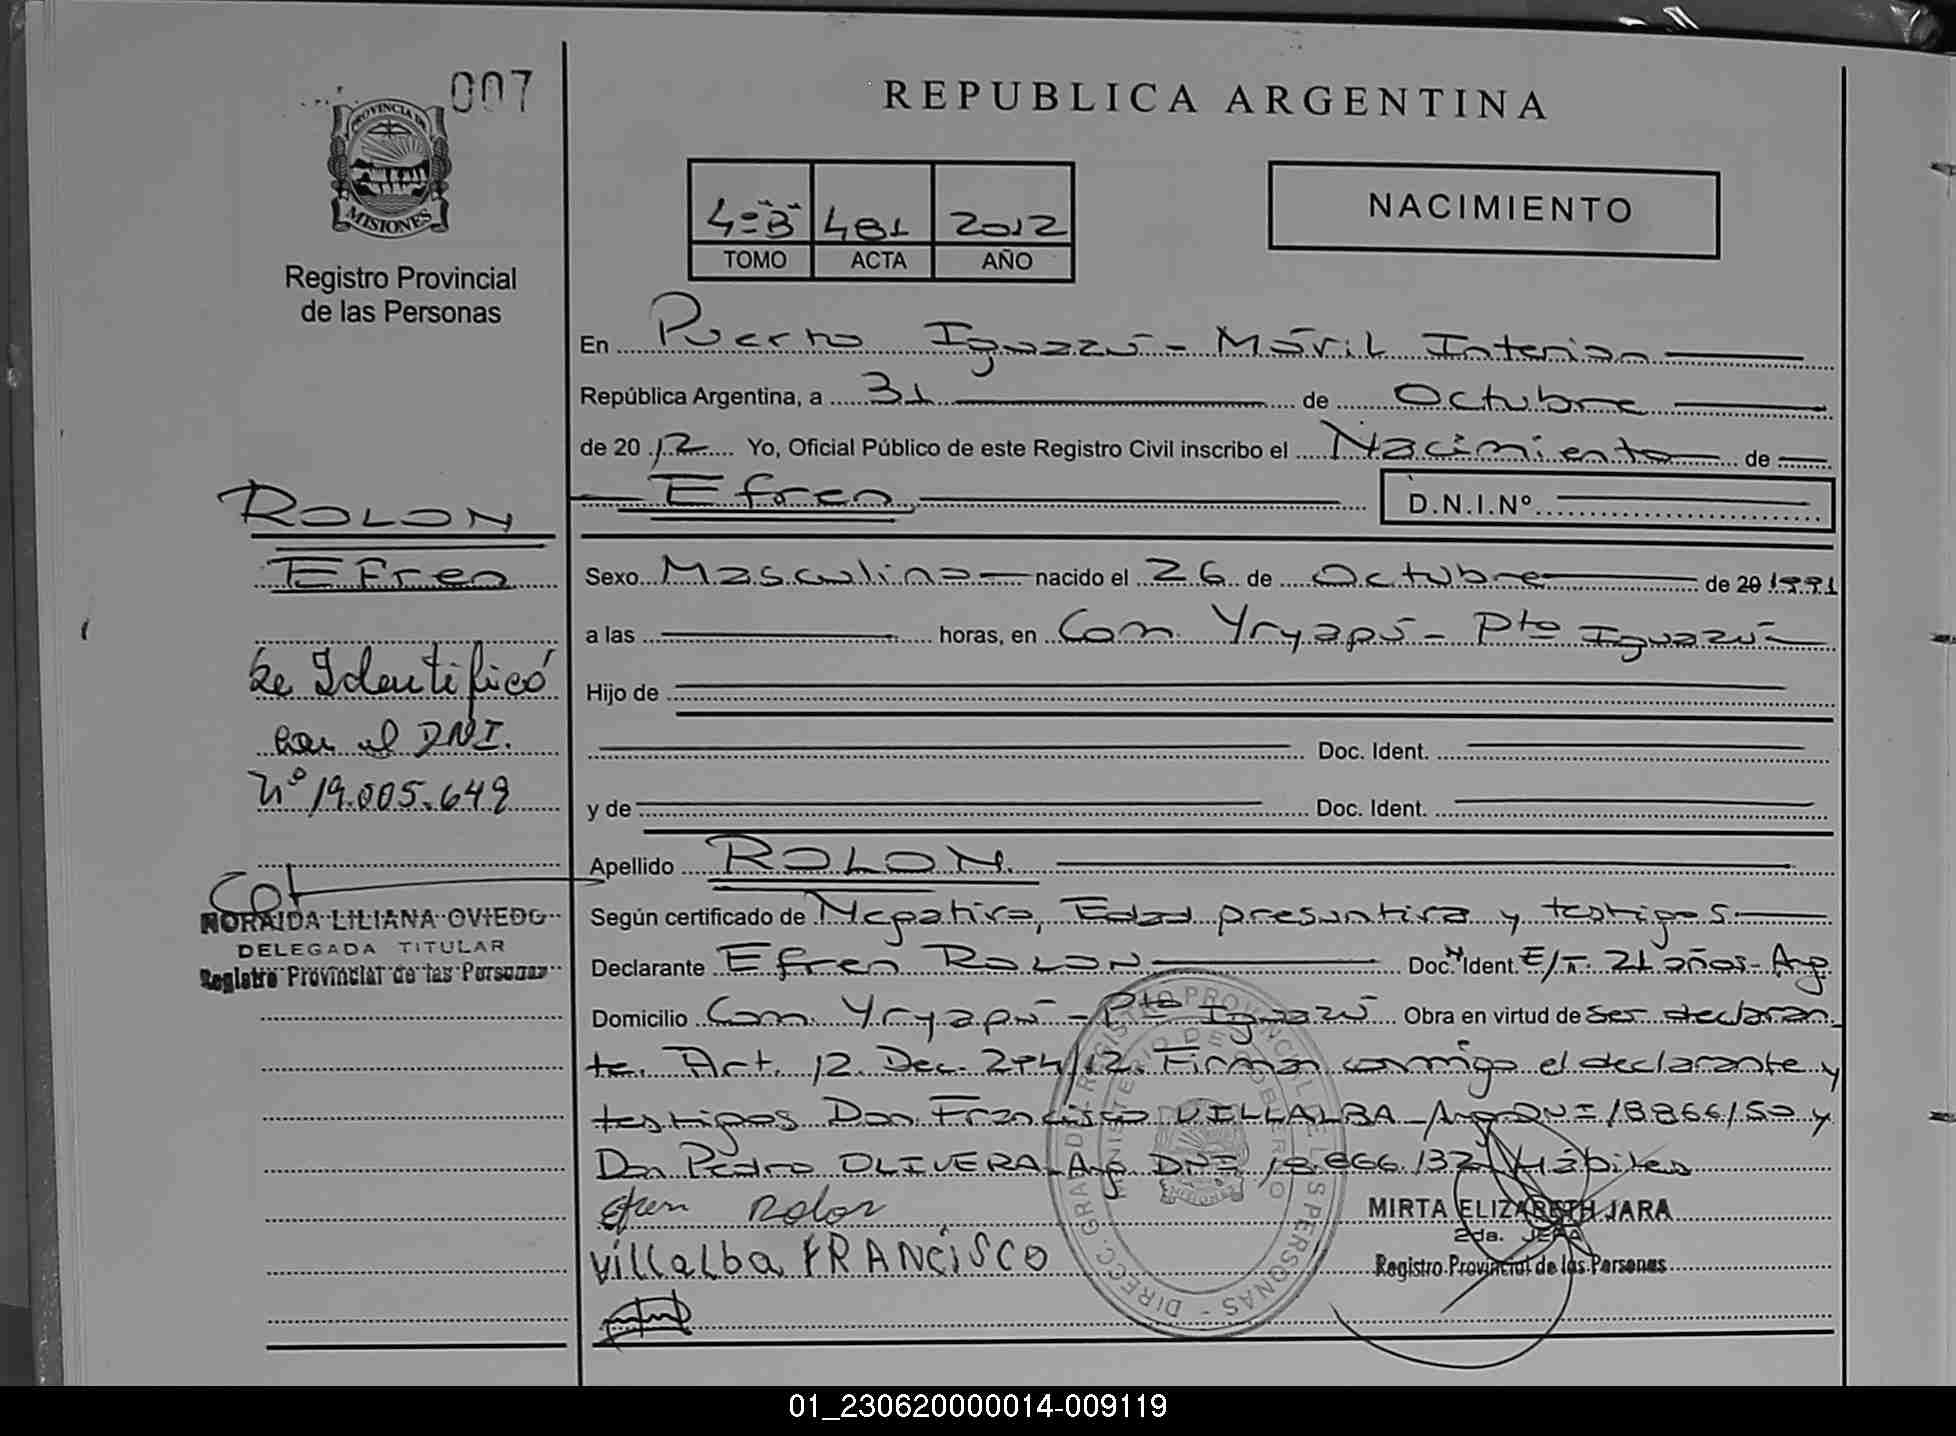 007
PROVINCIA DE
MISIONES
Registro Provincial
de las Personas
REPUBLICA ARGENTINA
4º "B" 481 2012
TOMO ACTA AÑO
NACIMIENTO
En Puerto Iguazú - Móvil Interior
República Argentina, a 31 de Octubre
de 2012 Yo, Oficial Público de este Registro Civil inscribo el Nacimiento de
Efren D.N.I.Nº
Sexo Masculino nacido el 26 de Octubre de 20 1991
a las horas, en Com. Yryapú - Pto Iguazú
Hijo de
Doc. Ident.
y de Doc. Ident.
Apellido ROLON.
Según certificado de Negativo, Edad presuntiva y testigos
Declarante Efren ROLON Doc. Ident. E/T. 21 años - Arg.
Domicilio Com. Yryapú - Pto Iguazú Obra en virtud de ser declaran
te. Art. 12. Dec. 274/12. Firman conmigo el declarante y
testigos Don Francisco VILLALBA - Arg. DNI 18.866.150 y
Don Pedro OLIVERA - Arg. DNI 18.866.132 Hábiles
Efren Rolon
Villalba FRANCISCO
MIRTA ELIZABETH JARA
2da. JEFA
Registro Provincial de las Personas
ROLON
Efren
Se Identificó
con el DNI.
Nº 19.005.649
NORAIDA LILIANA OVIEDO
DELEGADA TITULAR
Registro Provincial de las Personas
DIRECC. GRAL. DE REGISTRO PROVINCIAL DE LAS PERSONAS
MINISTERIO DE GOBIERNO
MISIONES
01_230620000014-009119